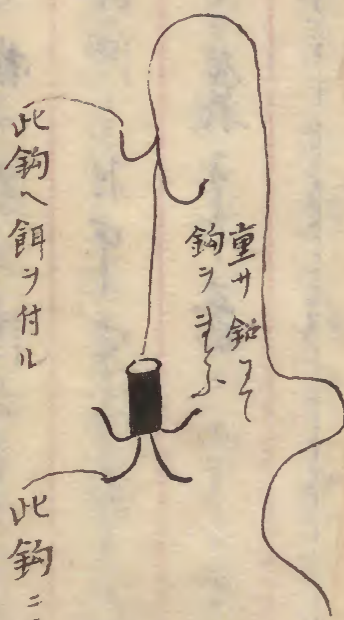 重サ鉛ニて
鈎ヲ
此鈎ヘ餌ヲ付ル
此鈎ニ